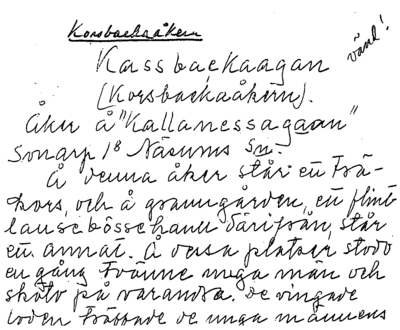 Korsbackaåkern
vänd!
Kassbackaagan
(Korsbackaåkern).
Åker å "Kallanessagaan"
Sonarp 1⁸ Näsums Sn.
Å denna åker står en Trä-
kors, och å granngården, en flint
låusebössehann därifrån, står
en annat. Å dessa platser stodo
en gång tvänne unga män och
sköto på varandra. De vingade
loden träffade de unga männens